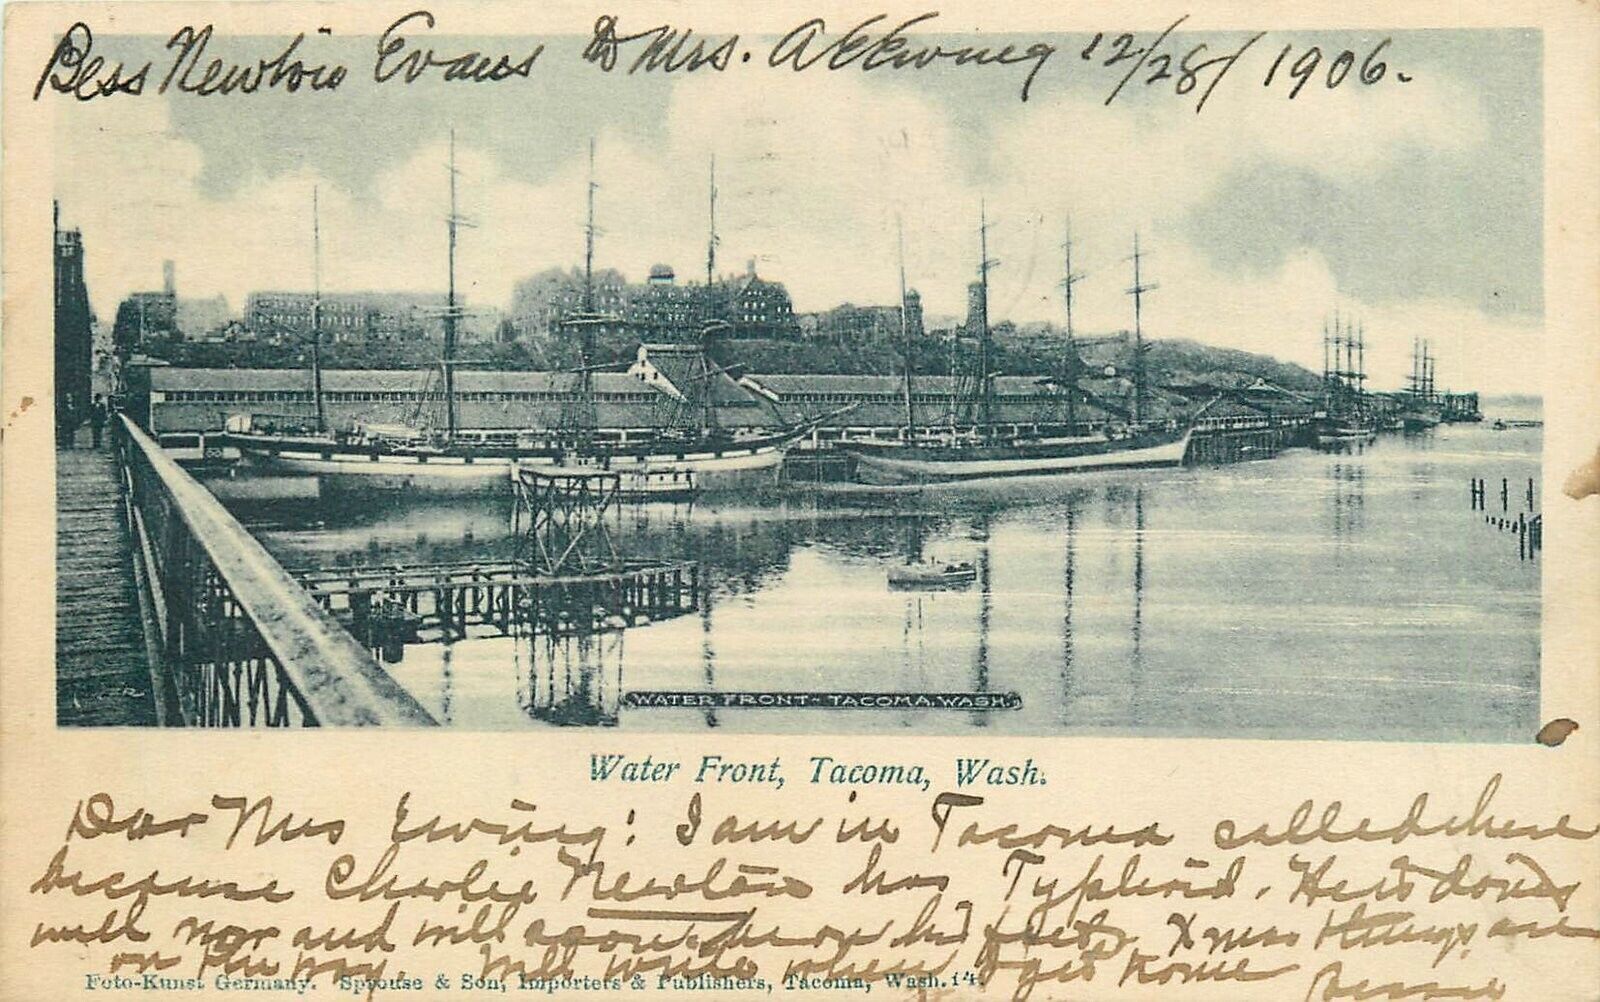 Bess Newton Evans to Mrs. A E Ewing 12/28/1906.
WATER FRONT - TACOMA, WASH.
Water Front, Tacoma, Wash.
Dear Mrs Ewing: I am in Tacoma called here
because Charlie Newton has Typhoid. He is doing
well now and will soon be on his feet. Xmas things are
on the way. Will write when I get home
Foto-Kunst Germany. Sprouse & Son, Importers & Publishers, Tacoma, Wash. 14.
Bessie